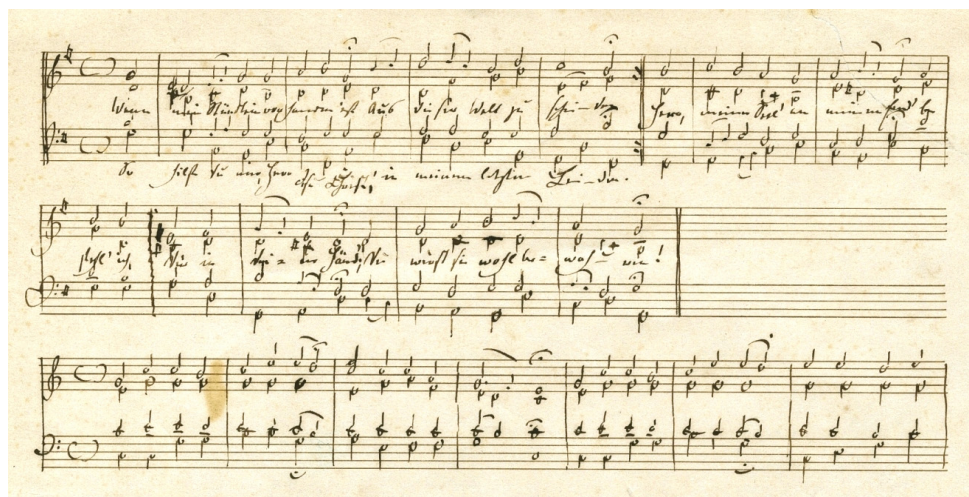 Wenn mein Stündlein vorhanden ist Aus dieser Welt zu scheiden Herr, meine Seel' an meinem End' be
So hilf du mir, Herr Jesu Christ, in meinem letzten Leiden.
fehl' ich Dir in Dei = ne Händ', Du wirst sie wohl be = wah = ren!